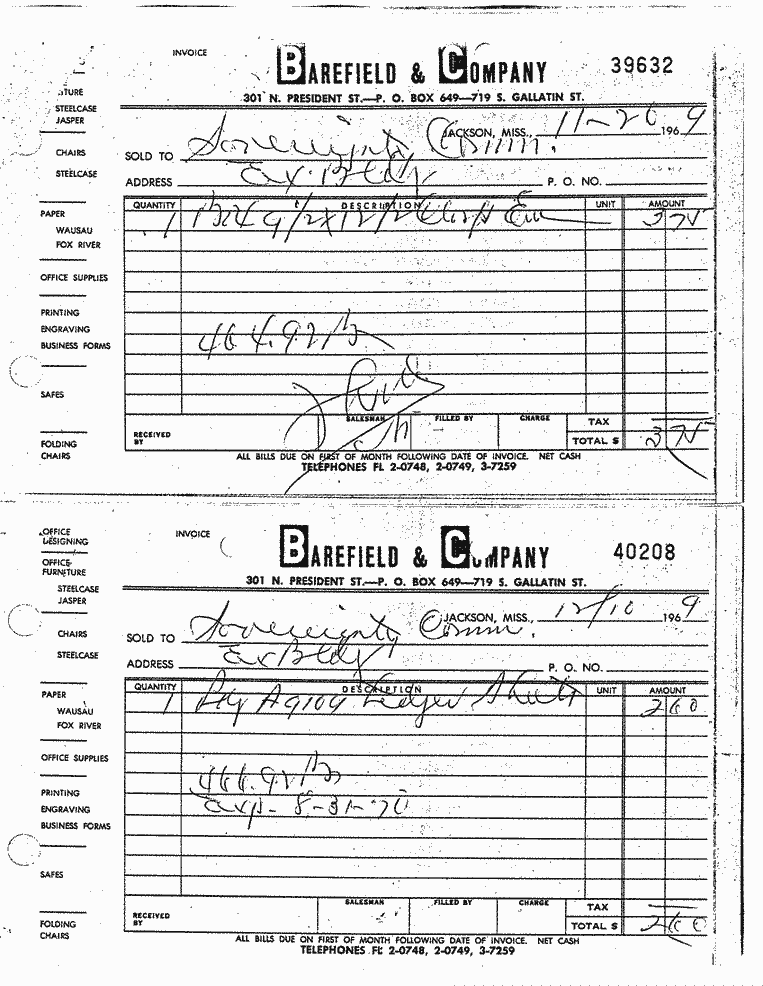 INVOICE
BAREFIELD & COMPANY
39632
301 N. PRESIDENT ST.—P. O. BOX 649—719 S. GALLATIN ST.
JACKSON, MISS., 11-20 1969
SOLD TO Sovereignty Comm.
ADDRESS Ex. Bldg
P. O. NO.
STEELCASE
JASPER
CHAIRS
STEELCASE
PAPER
WAUSAU
FOX RIVER
OFFICE SUPPLIES
PRINTING
ENGRAVING
BUSINESS FORMS
SAFES
FOLDING
CHAIRS
QUANTITY DESCRIPTION UNIT AMOUNT
1 9 1/2 x 12 1/2 Clasp Env 3 75
SALESMAN FILLED BY CHARGE TAX
RECEIVED
BY
TOTAL $ 3 75
ALL BILLS DUE ON FIRST OF MONTH FOLLOWING DATE OF INVOICE. NET CASH
TELEPHONES FL 2-0748, 2-0749, 3-7259
OFFICE
DESIGNING
OFFICE
FURNITURE
STEELCASE
JASPER
CHAIRS
STEELCASE
PAPER
WAUSAU
FOX RIVER
OFFICE SUPPLIES
PRINTING
ENGRAVING
BUSINESS FORMS
SAFES
FOLDING
CHAIRS
INVOICE
BAREFIELD & COMPANY
40208
301 N. PRESIDENT ST.—P. O. BOX 649—719 S. GALLATIN ST.
JACKSON, MISS., 12/10 1969
SOLD TO Sovereignty Comm.
ADDRESS Ex Bldg
P. O. NO.
QUANTITY DESCRIPTION UNIT AMOUNT
1 Pkg A9109 Ledger Sheets 2 60
Exp- 8-31-70
SALESMAN FILLED BY CHARGE TAX
RECEIVED
BY
TOTAL $ 2 60
ALL BILLS DUE ON FIRST OF MONTH FOLLOWING DATE OF INVOICE. NET CASH
TELEPHONES FL 2-0748, 2-0749, 3-7259